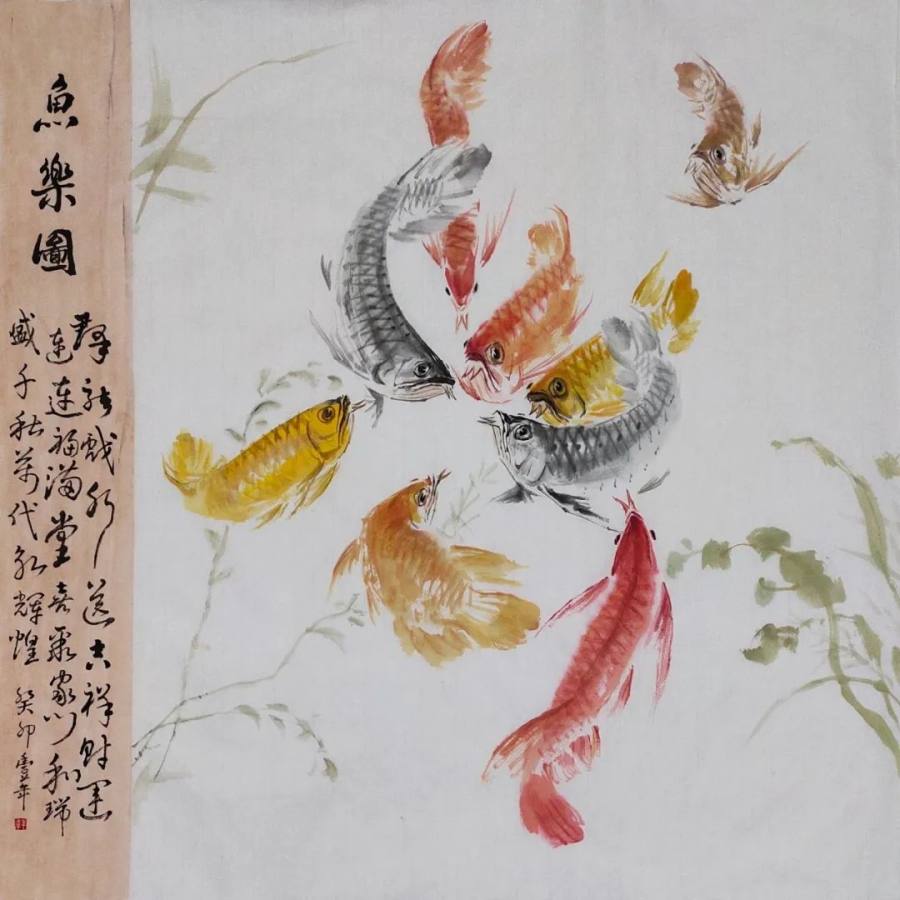 魚樂圖
群龍戲水送吉祥財運
連連福滿堂喜氣家門和瑞
盛千秋萬代永輝煌
癸卯雪年